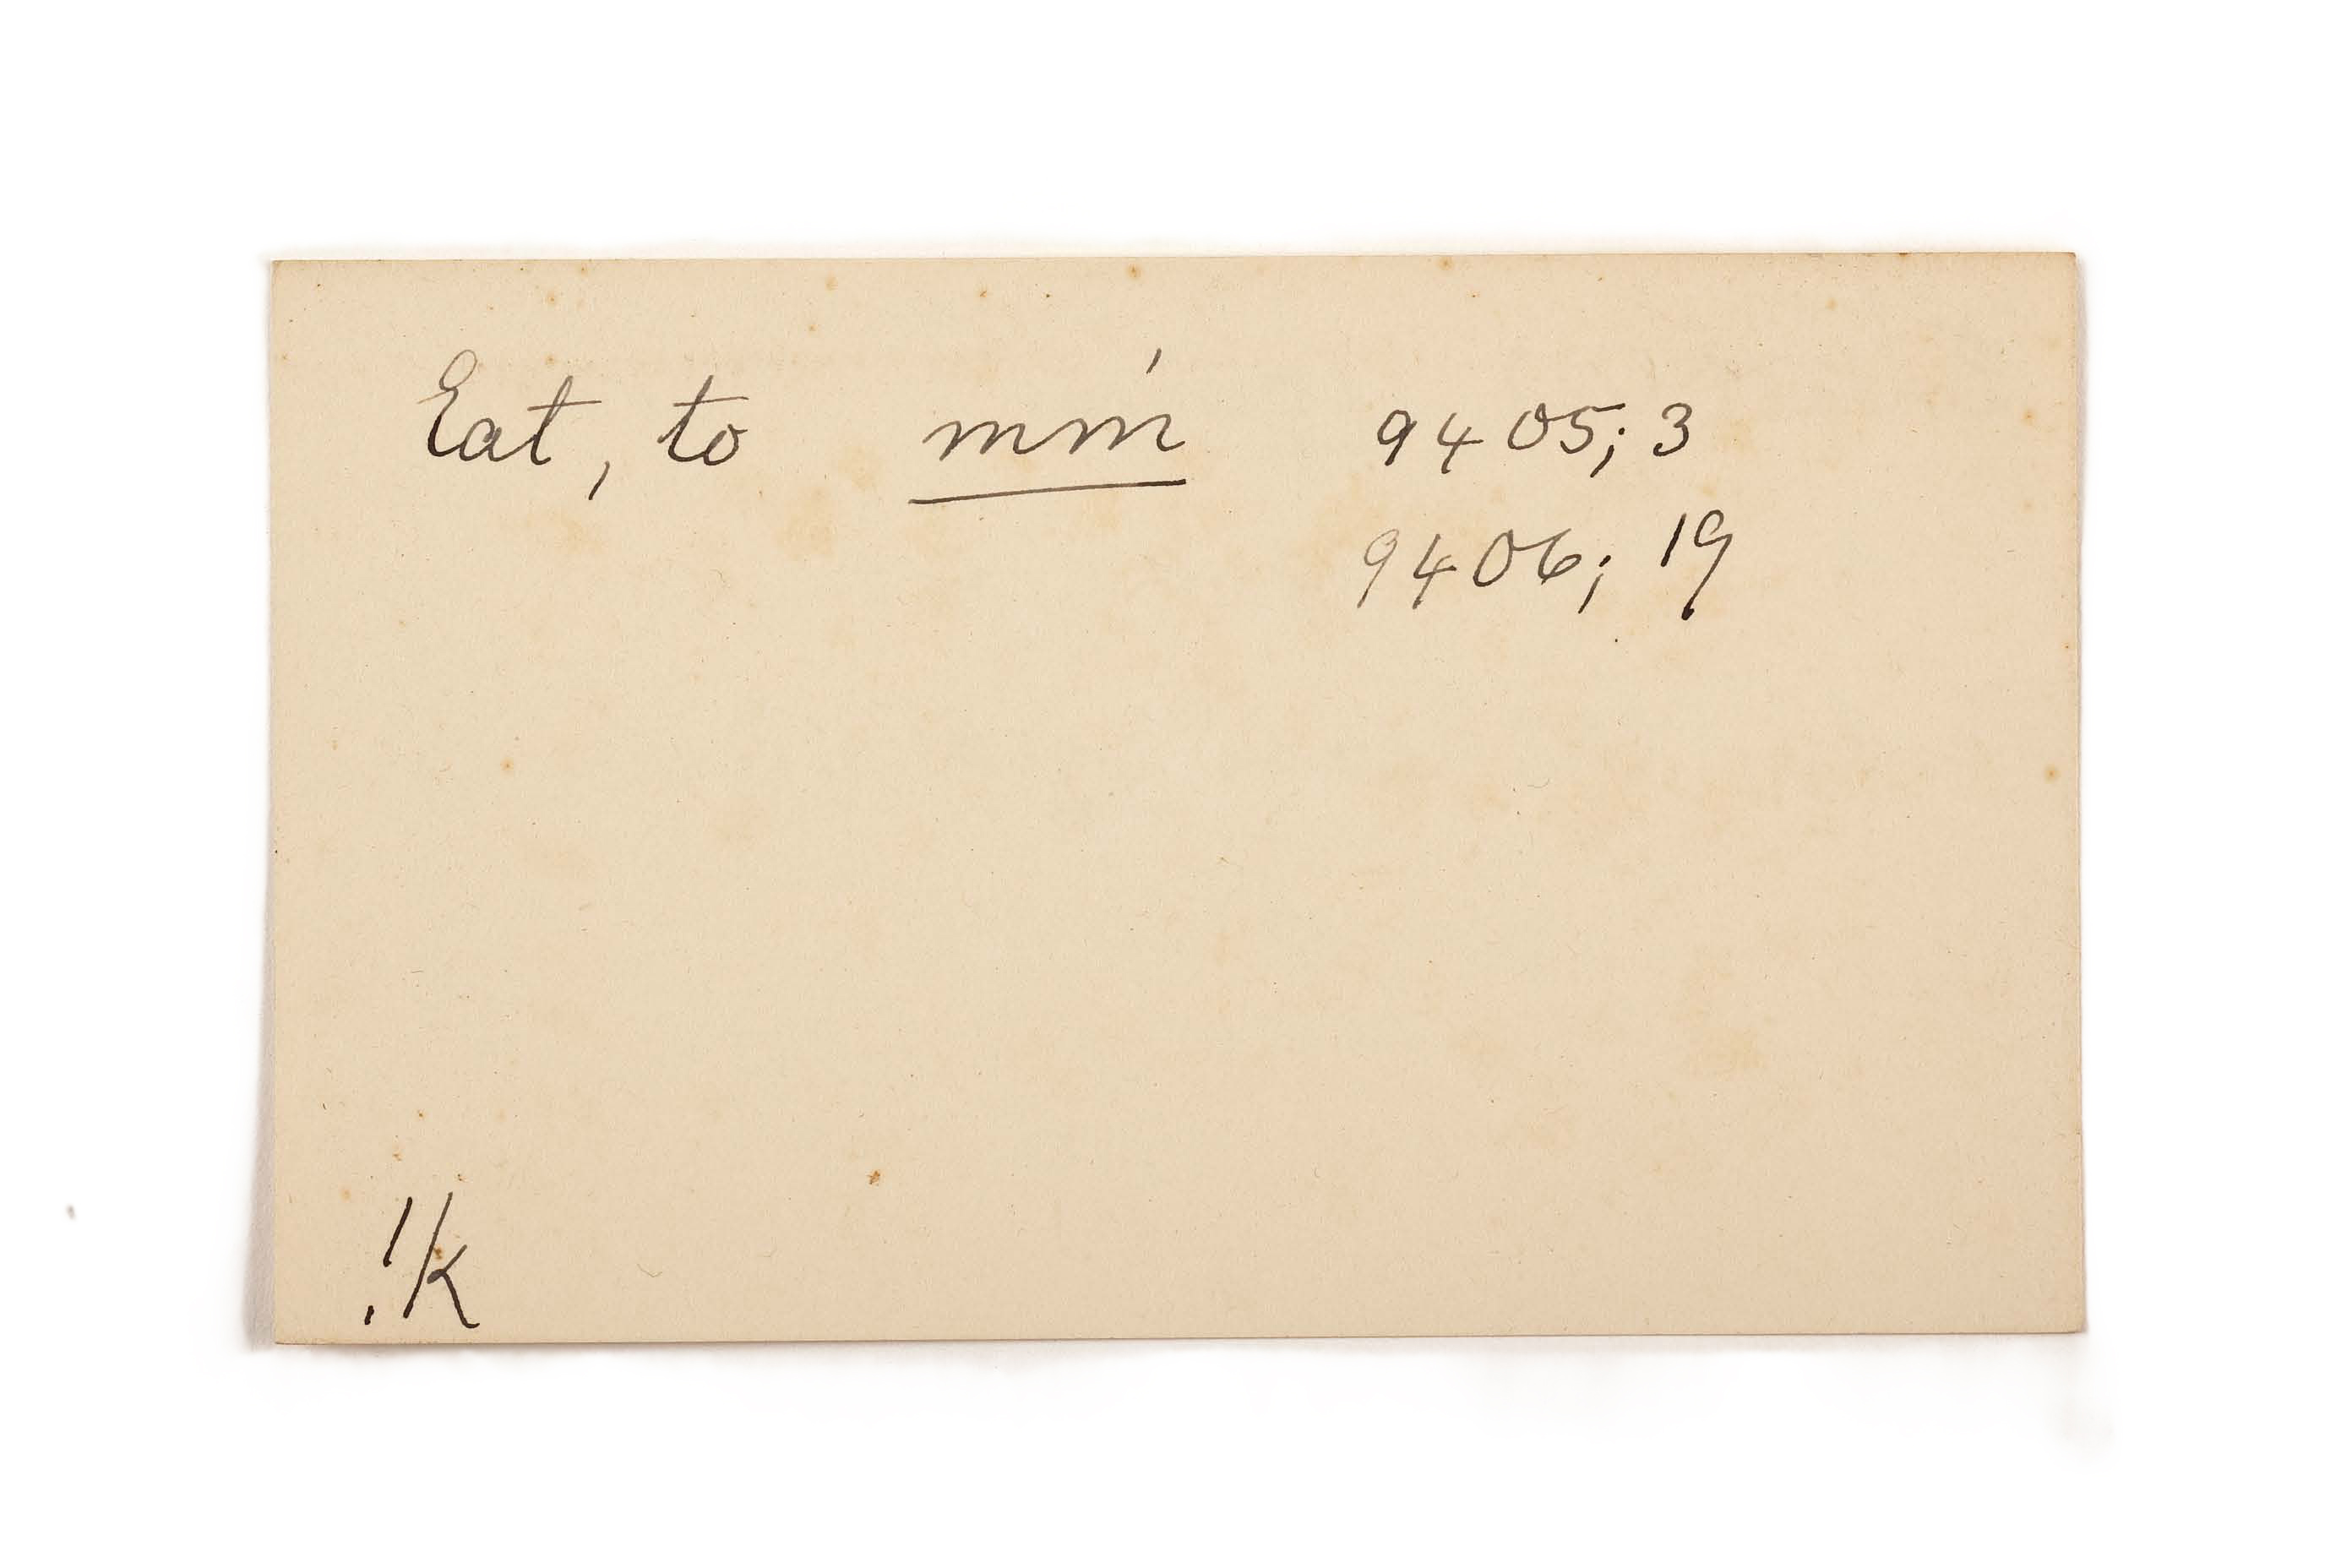 Eat, to mḿ 9405; 3
9406; 19
!k